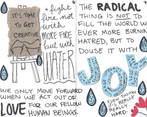 IT'S TIME
TO GET
CREATIVE
fight
fire not
with
MORE FIRE
but with
WATER
WE ONLY MOVE FORWARD
WHEN WE ACT OUT OF
LOVE FOR OUR FELLOW
HUMAN BEINGS.
THE RADICAL
THING IS NOT TO
FILL THE WORLD W
EVER MORE BURNING
HATRED, BUT TO
DOUSE IT WITH
JOY